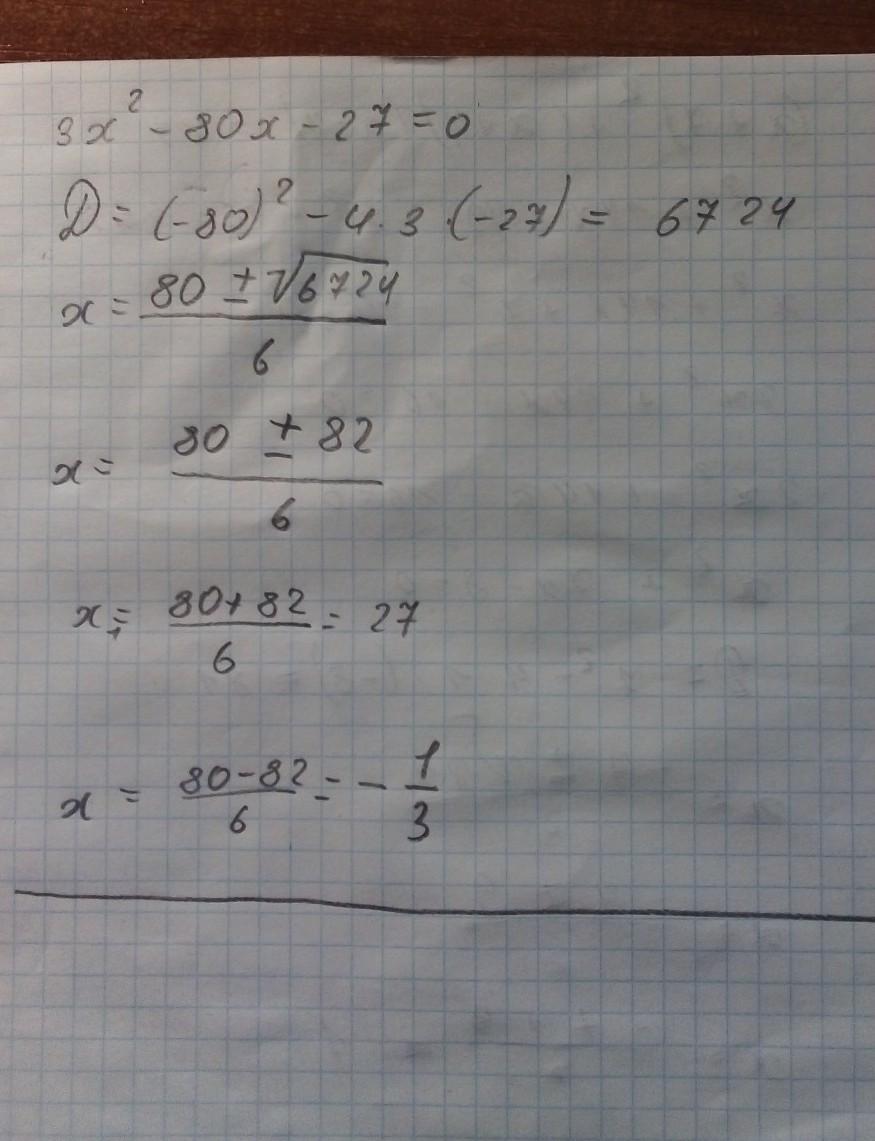 3x² - 80x - 27 = 0
D = (-80)² - 4 · 3 · (-27) = 6724
x = (80 ± √6724) / 6
x = (80 ± 82) / 6
x = (80 + 82) / 6 = 27
x = (80 - 82) / 6 = - 1/3